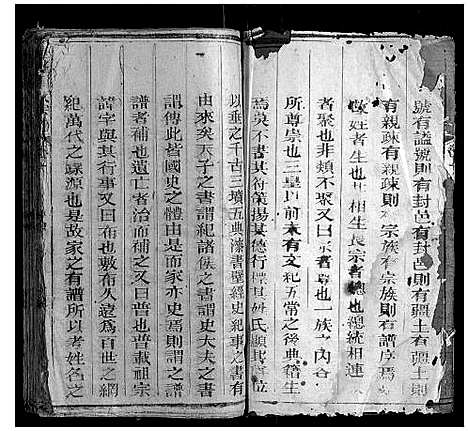 號有謚號則有封邑有封邑則有疆土有疆土則
有親疎有親疎則 宗族有宗族則有譜序焉
姓者生也 相生長宗者總也總統相連
者聚也非類不聚又曰宗者尊也一族之內合
所尊崇也三皇以前未有文紀五常之後典籍生
焉莫不書其符策揚其德行 其姓氏顯其 位
以垂之千古三墳五典漆書壁經史紀事之書有
由來矣天子之書謂紀諸侯之書謂史大夫之書
謂傳此省國史之體由是而家亦史焉則謂之譜
譜者補也遺亡者治而補之又曰普也普載祖宗
諱字與其行事又曰布也敷布久遠為百世之綱
紀萬代之錄源也是故家之有譜所以考姓名之